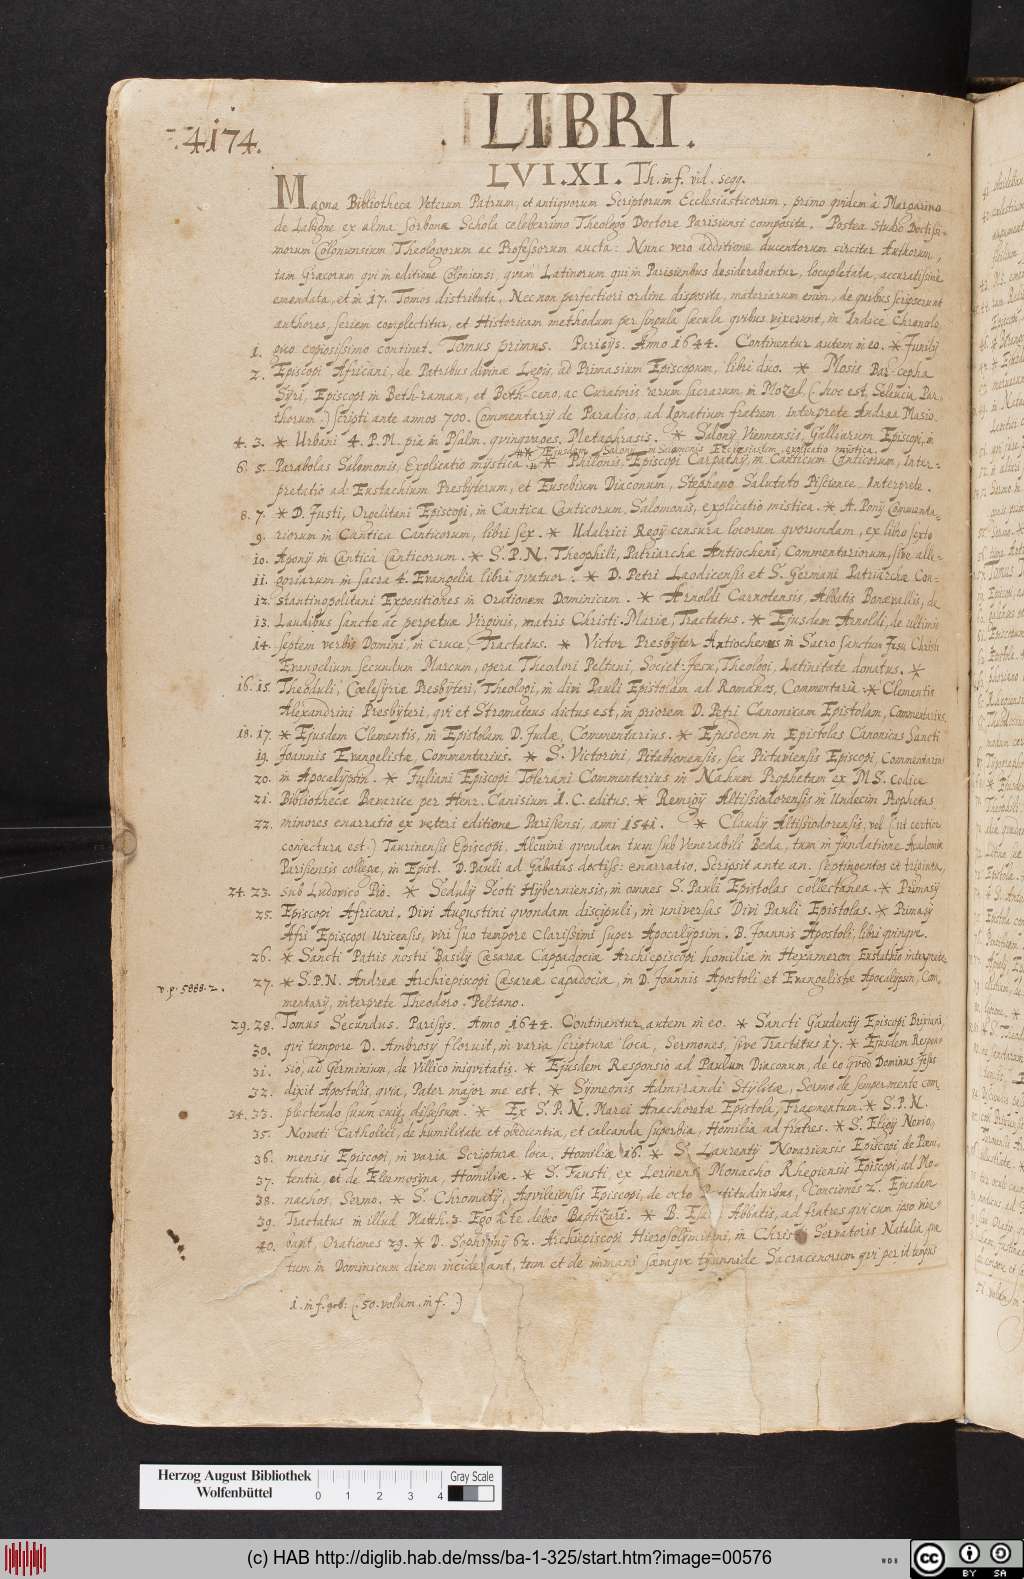 4174.
LIBRI.
LVI.XI. Th. in f. vid. seqq.
Magna Bibliotheca Veterum Patrum, et antiquorum Scriptorum Ecclesiasticorum, primo quidem à Margarino
de Labigne ex alma Sorbonæ Schola celeberrimo Theologo Doctore Parisiensi composita. Postea studio Doctissi=
morum Coloniensium Theologorum ac Professorum aucta: Nunc vero additione ducentorum circiter Authorum,
tam Græcorum qui in editione Coloniensi, quam Latinorum qui in Parisiensibus desiderabantur, locupletata, accuratissimè
emendata, et in 17. Tomos distributa, Nec non perfectiori ordine disposita, materiarum enim, de quibus scripserunt
authores, seriem complectitur, et Historicam methodum per singula sæcula quibus vixerunt, in Indice Chronolo
1. gico copiosissimo continet. Tomus primus. Parisijs. Anno 1644. Continentur autem in eo. * Junilij
2. Episcopi Africani, de Partibus divinæ Legis, ad Primasium Episcopum, libri duo. * Mosis Bar-cepha
Syri, Episcopi in Beth-raman, et Beth-ceno, ac Curatoris rerum sacrarum in Mozal (: hoc est, Seleucia Par,
thorum:) scripti ante annos 700. Commentarij de Paradiso, ad Ignatium fratrem. Interprete Andrea Masio.
4. 3. * Urbani 4. P.M. pia in Psalm. quinquages. Metaphrasis. * Salonij Viennensis, Galliarum Episcopi, in
** Ejusdem Salonij in Salomonis Ecclesiastem explicatio mystica.
6. 5. Parabolas Salomonis, Explicatio mystica. * Philonis, Episcopi Carpathij, in Canticum Canticorum, Inter=
pretatio ad Eustachium Presbyterum, et Eusebium Diaconum, Stephano Salutato Pisciense Interprete.
8. 7. * D. Justi, Orgelitani Episcopi, in Cantica Canticorum, Salomonis, explicatio mistica. * A. Ponij Commenta=
9. riorum in Cantica Canticorum, libri sex. * Udalrici Regij censura locorum quorundam, ex libro sexto
10. Aponij in Cantica Canticorum. * S.P.N. Theophili, Patriarchæ Antiocheni, Commentariorum, sive alle=
11. goriarum in sacra 4. Evangelia libri quatuor. * D. Petri Laodicensis et S. Germani Patriarchæ Con=
12. stantinopolitani Expositiones in Orationem Dominicam. * Arnoldi Carnotensis, Abbatis Bonævallis, de
13. Laudibus sanctæ ac perpetuæ Virginis, matris Christi Mariæ, Tractatus. * Ejusdem Arnoldi, de ultimis
14. septem verbis Domini, in cruce, Tractatus. * Victor Presbyter Antiochenus in Sacro sanctum Jesu Christi
Evangelium secundum Marcum, opera Theodori Peltani, Societ: Jesu, Theologi, Latinitate donatus. *
16. 15. Theoduli, Cœlesyriæ Presbyteri, Theologi, in divi Pauli Epistolam ad Romanos, Commentaria. * Clementis
Alexandrini Presbyteri, qui et Stromateus dictus est, in priorem D. Petri Canonicam Epistolam, Commentarius.
18. 17. * Ejusdem Clementis, in Epistolam D. Judæ, Commentarius. * Ejusdem in Epistolas Canonicas Sancti
19. Joannis Evangelistæ, Commentarius. * S. Victorini, Pitabionensis, seu Pictaviensis Episcopi, Commentarius
20. in Apocalypsin. * Juliani Episcopi Tolerani Commentarius in Nahum Prophetam ex MS. Codice
21. Bibliothecæ Bavaricæ per Henr. Canisium I.C. editus. * Remigij Altissiodorensis in Undecim Prophetas
22. minores enarratio ex veteri editione Parisiensi, anni 1541. * Claudij Altissiodorensis, vel (:ut certior
conjectura est:) Taurinensis Episcopi, Alcuini quondam tum sub Venerabili Beda, tum in fundatione Academiæ
Parisiensis collegæ, in Epist. D. Pauli ad Galatas doctiss: enarratio, Scripsit ante an. septingentos et triginta,
24. 23. sub Ludovico Pio. * Sedulij Scoti Hyberniensis, in omnes S. Pauli Epistolas collectanea. * Primasij
25. Episcopi Africani. Divi Augustini quondam discipuli, in universas Divi Pauli Epistolas. * Primasij
Afri Episcopi Uticensis, viri suo tempore Clarissimi super Apocalypsim. B. Joannis Apostoli, libri quinque.
26. * Sancti Patris nostri Basilij Cæsareæ Cappadociæ Archiepiscopi homiliæ in Hexameron Eustathio interprete
v. p. 5888. 2. 27. * S.P.N. Andreæ Archiepiscopi Cæsareæ capadociæ, in D. Joannis Apostoli et Evangelistæ Apocalypsin, Com,
mentarij, interprete Theodoro Peltano.
29. 28. Tomus Secundus. Parisijs. Anno 1644. Continentur autem in eo * Sancti Gaudentij Episcopi Brixiani,
30. qui tempore D. Ambrosij floruit, in varia scripturæ loca, Sermones, sive Tractatus 17. * Ejusdem Respon=
31. sio, ad Germinium, de Villico iniquitatis. * Ejusdem Responsio ad Paulum Diaconum, de eo quod Dominus Jesus
32. dixit Apostolis, quia, Pater major me est. * Symeonis Admirandi Stylitæ, Sermo de semper mente com
34. 33. plectendo suum cuiq, discessum. * Ex S.P.N. Marci Anachoretæ Epistola, Fragmentum. * S.P.N.
35. Novati Catholici, de humilitate et obedientia, et calcanda superbia, Homilia ad fratres. * S. Eligij Novio,
36. mensis Episcopi, in varia Scripturæ loca, Homiliæ 16. * S. Laurentij Novariensis Episcopi de Pœni,
37. tentia, et de Eleemosyna, Homiliæ. * S. Fausti, ex Lerinensi Monacho Rhegiensis Episcopi, ad Mo,
38. nachos, Sermo. * S. Chromatij, Aquileiensis Episcopi, de octo Beatitudinibus, Conciones 2. Ejusdem
39. Tractatus in illud Matth. 3. Ego à te debeo Baptizari. * B. Esaiæ Abbatis, ad fratres qui cum ipso vive,
40. bant, Orationes 29. * D. Sophronij 62. Archiepiscopi Hierosolymitani, in Christi Servatoris Natalia, quæ
tum in Dominicum diem inciderant, tum et de immani sævaque tyrannide Saracenorum qui per id tempus
1. in f. geb: (:50. volum. in f.:)
Herzog August Bibliothek
Wolfenbüttel
0 1 2 3 4
Gray Scale
(c) HAB http://diglib.hab.de/mss/ba-1-325/start.htm?image=00576
WDB
cc BY SA